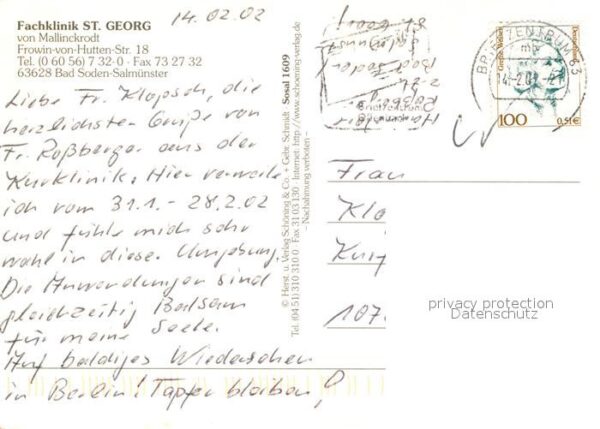 Fachklinik ST. GEORG
von Mallinckrodt
Frowin-von-Hutten-Str. 18
Tel. (0 60 56) 7 32-0 · Fax 73 27 32
63628 Bad Soden-Salmünster
14.02.02
Liebe Fr. Klopsch, die
herzlichsten Grüße von
Fr. Roßberger aus der
Kurklinik. Hier verweile
ich vom 31.1. - 28.2.02
und fühle mich sehr
wohl in dieser Umgebung.
Die Anwendungen sind
gleichzeitig Balsam
für meine Seele.
Auf baldiges Wiedersehen
in Berlin! Tapfer bleiben!
© Herst. u. Verlag Schöning & Co. + Gebr. Schmidt
Sosal 1609
Tel. (04 51) 310 310 0 · Fax 31 03 130 · Internet: http://www.schoening-verlag.de
– Nachahmung verboten –
BRIEFZENTRUM 63
mb
100
0,51€
Frau
Klo
Kurf
107
privacy protection
Datenschutz